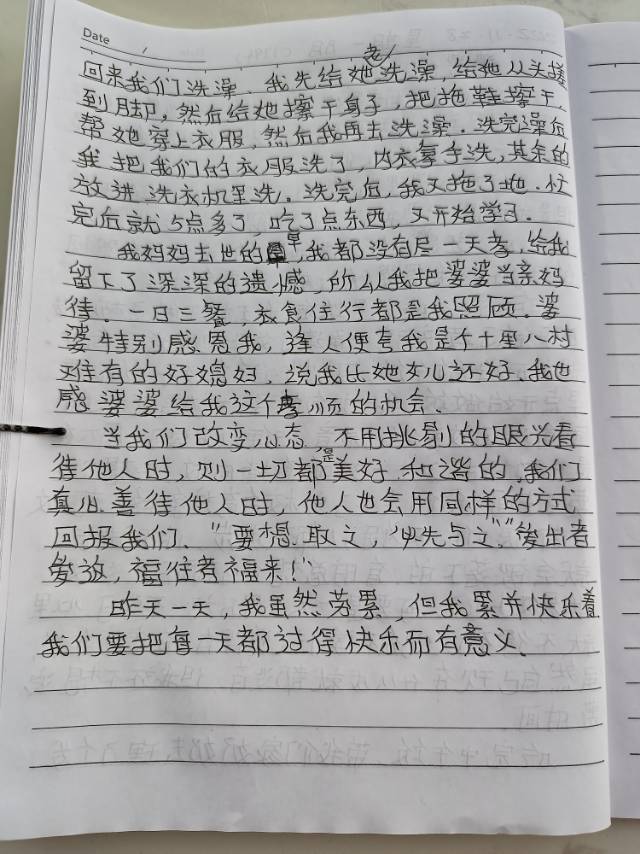 Date
回来我们洗澡、我先给她洗澡,给她从头搓
到脚,然后给她擦干身子,把拖鞋擦干、
帮她穿上衣服,然后我再去洗澡.洗完澡后
我把我们的衣服洗了,内衣拿手洗,其余的
放进洗衣机里洗。洗完后,我又拖了地.忙
完后就5点多了,吃了点东西,又开始学习.
我妈妈去世的早,我都没有尽一天孝,给我
留下了深深的遗憾,所以我把婆婆当亲妈
待.一日三餐,衣食住行都是我照顾.婆
婆特别感恩我,逢人便夸我是个十里八村
难有的好媳妇.说我比她女儿还好.我也
感婆婆给我这个孝顺的机会、
当我们改变心态,不用挑剔的眼光看
待他人时,则一切都是美好和谐的.我们
真心善待他人时,他人也会用同样的方式
回报我们、“要想取之,必先与之”“爱出者
爱返,福往者福来!”
昨天一天,我虽然劳累,但我累并快乐着
我们要把每一天都过得快乐而有意义、